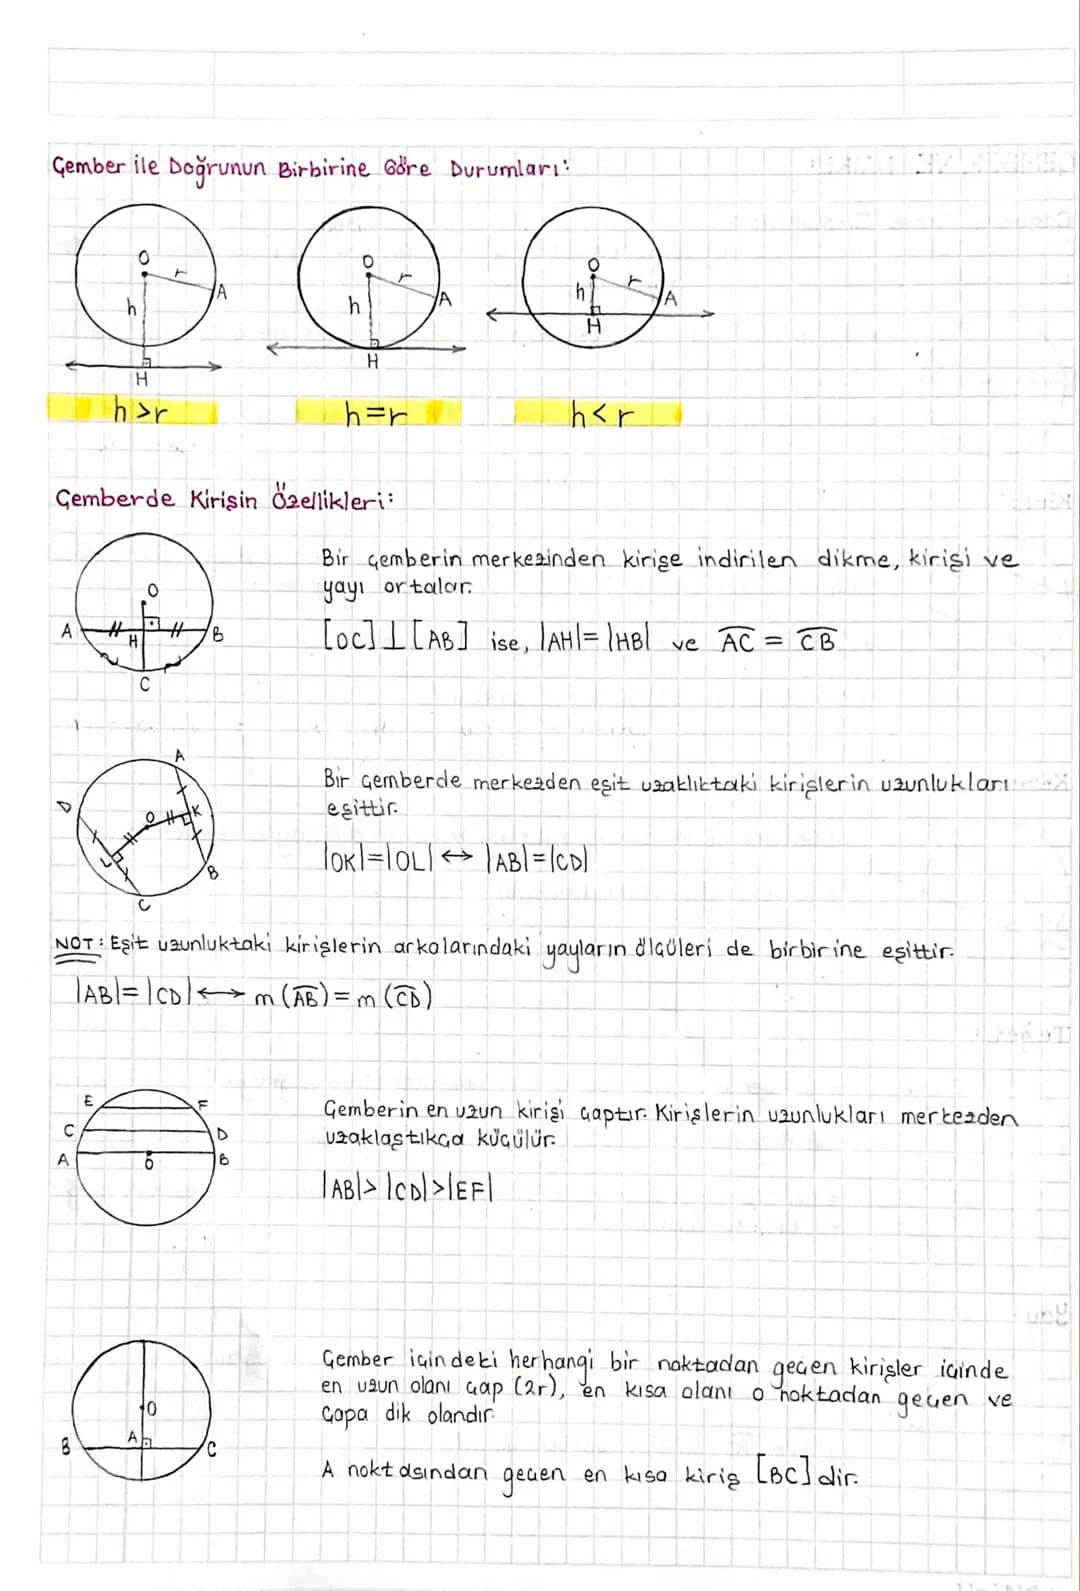 Çember ile Doğrunun Birbirine Göre Durumları:
O r A h H
O r A h H
O r A h H
h>r
h=r
h<r
Çemberde Kirişin Özellikleri:
O A H B C
Bir çemberin merkezinden kirişe indirilen dikme, kirişi ve
yayı ortalar.
[OC]⊥[AB] ise, |AH|=|HB| ve A͡C = C͡B
A D O K L B C
Bir çemberde merkezden eşit uzaklıktaki kirişlerin uzunlukları
eşittir.
|OK|=|OL| ↔ |AB|=|CD|
NOT: Eşit uzunluktaki kirişlerin arkalarındaki yayların ölçüleri de birbirine eşittir.
|AB|=|CD| ↔ m(A͡B)=m(C͡D)
E F
C D
A O B
Çemberin en uzun kirişi çaptır. Kirişlerin uzunlukları merkezden
uzaklaştıkça küçülür.
|AB|>|CD|>|EF|
O
B A C
Çember içindeki herhangi bir noktadan geçen kirişler içinde
en uzun olanı çap (2r), en kısa olanı o noktadan geçen ve
çapa dik olandır.
A noktasından geçen en kısa kiriş [BC] dir.